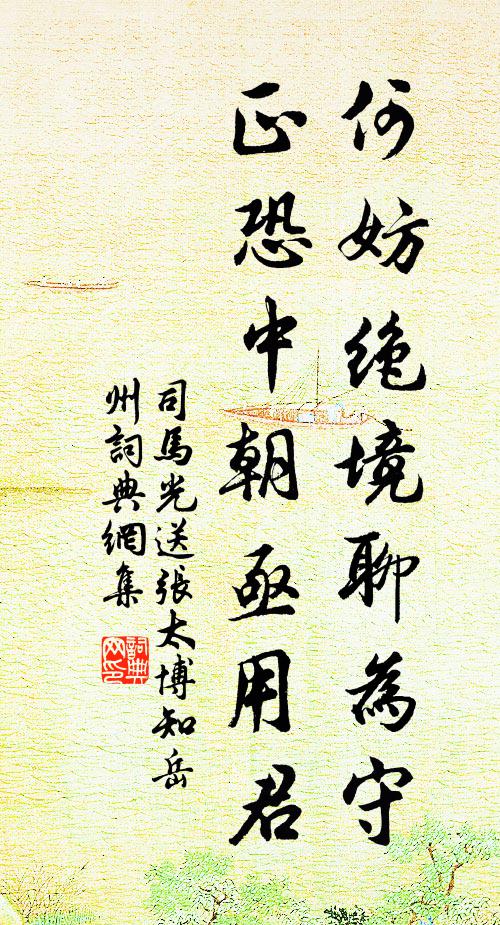 何妨絶境聊為守
正恐中朝亟用君
司馬光送張太博知岳
州詞典網集
詞典
网印